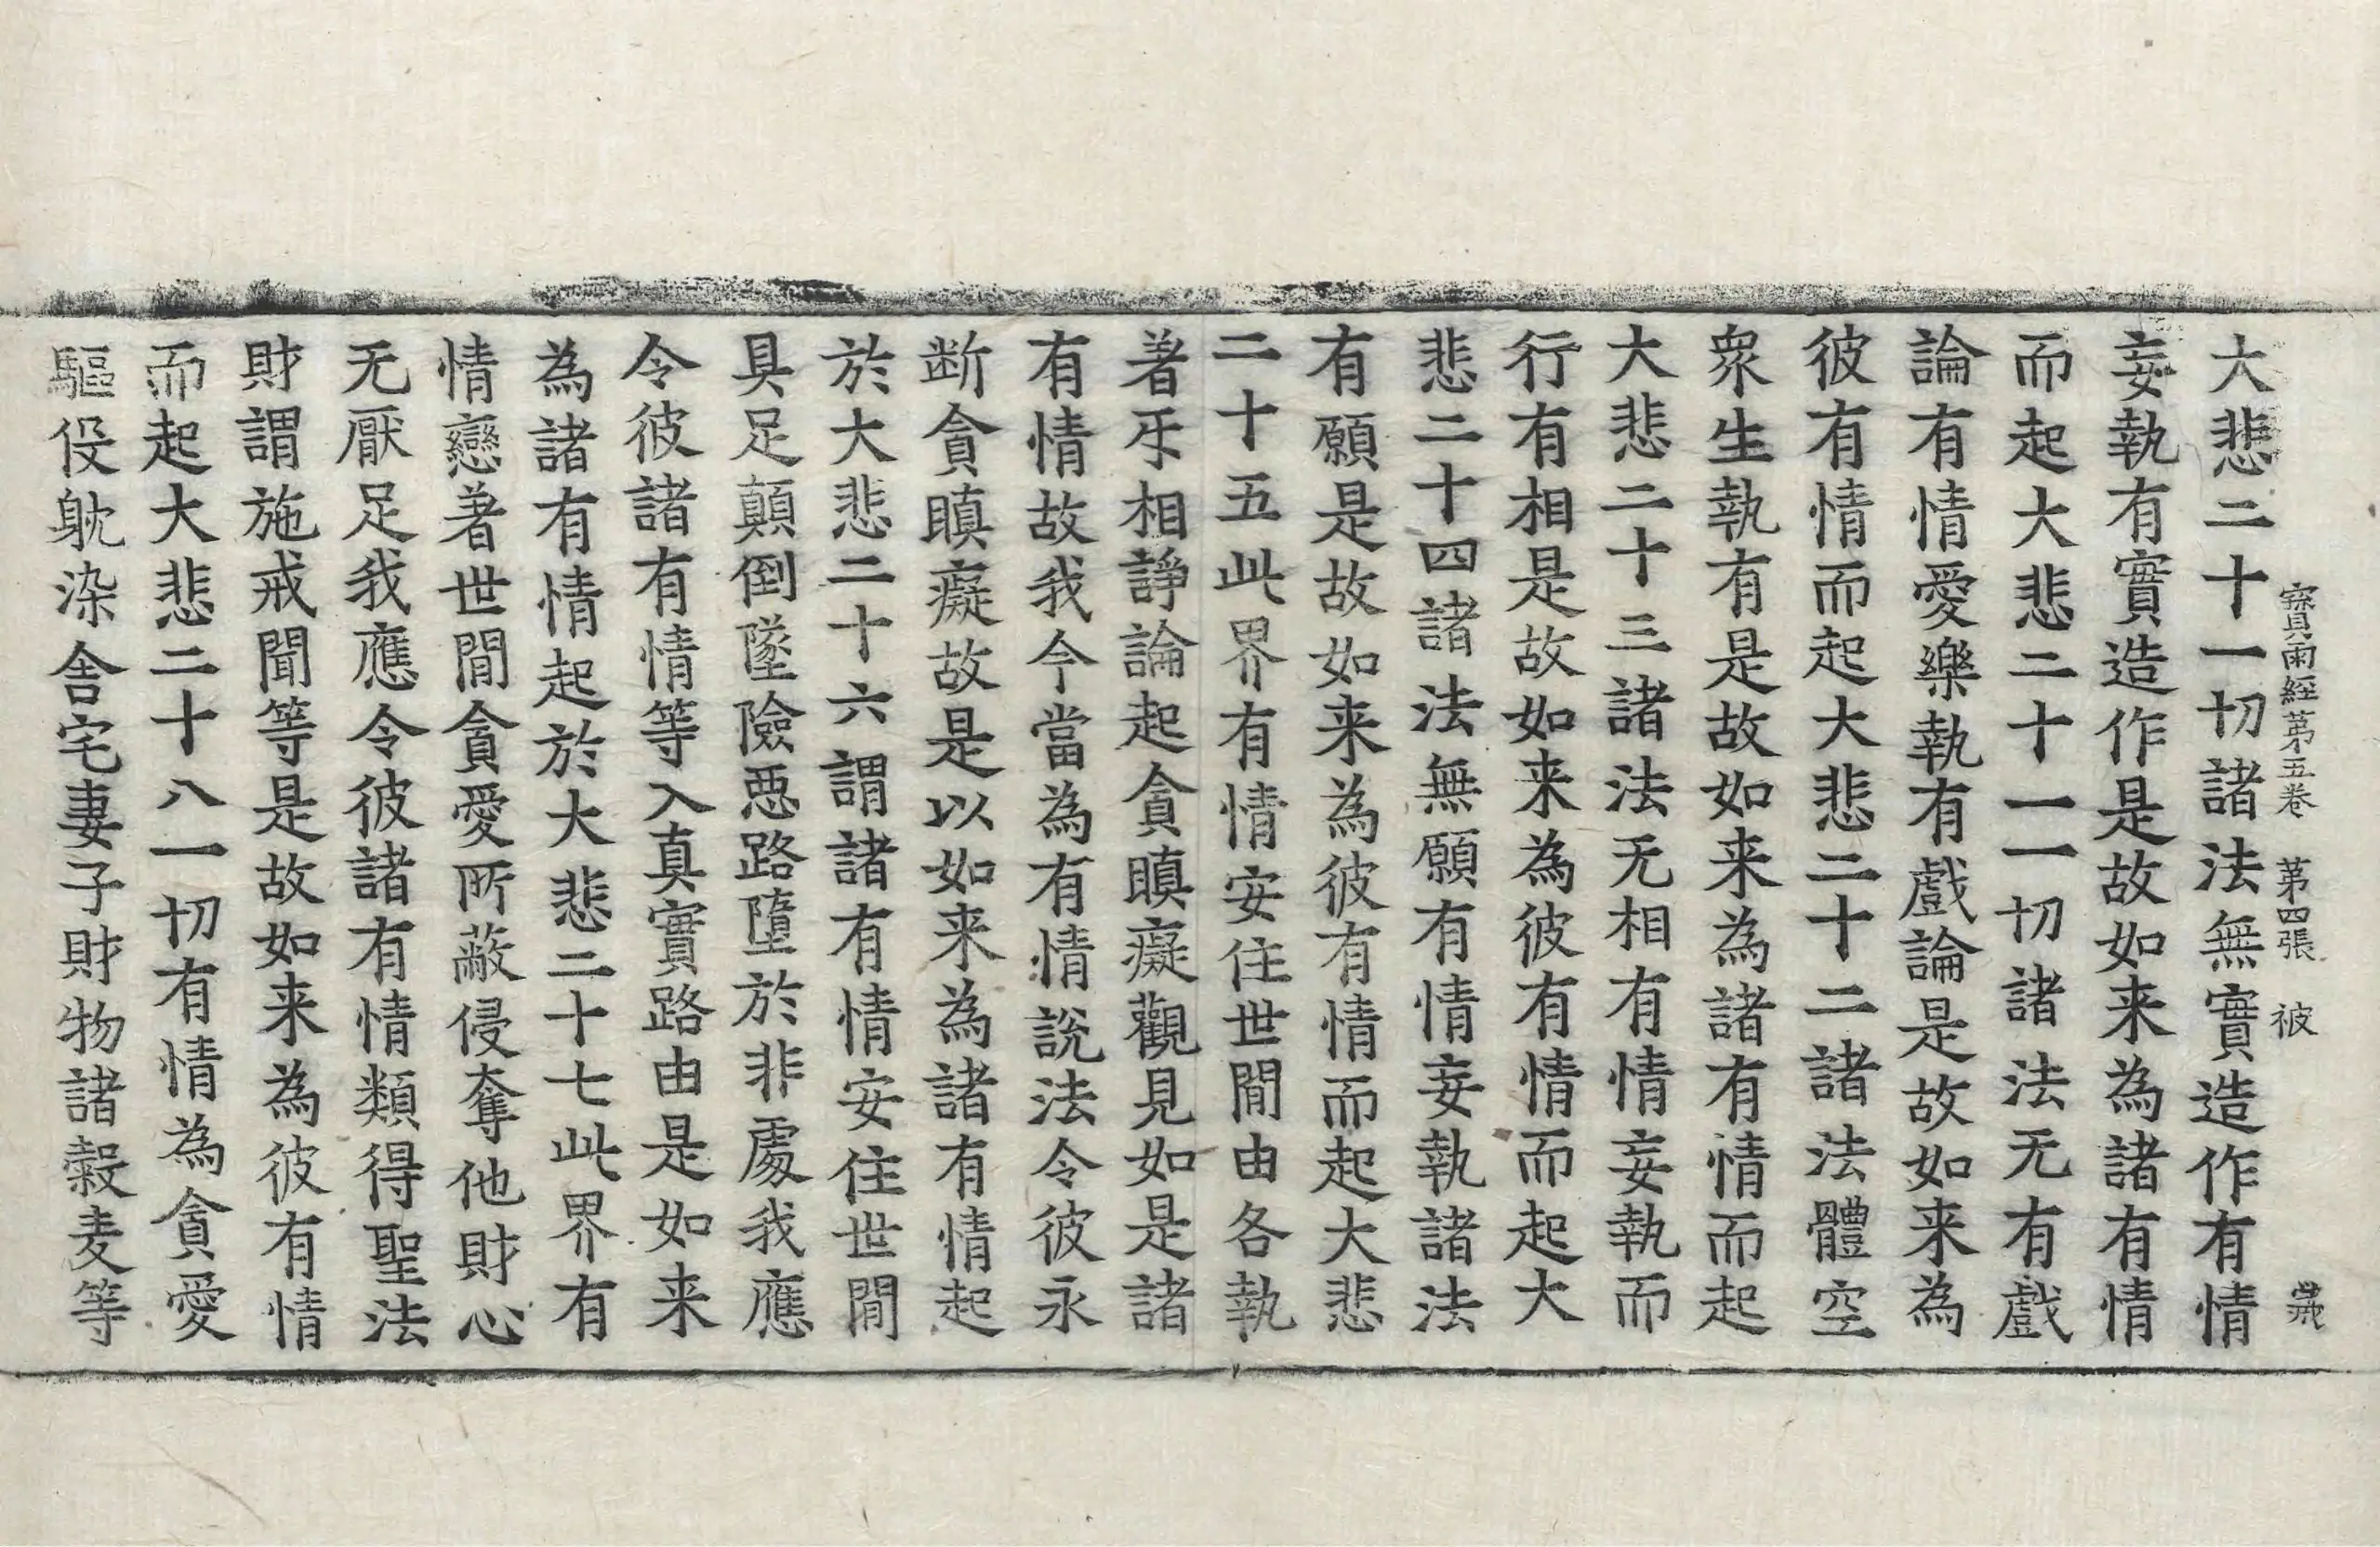 寳雨經第五卷 第四張 彼
大悲二十一切諸法無實造作有情
妄執有實造作是故如来為諸有情
而起大悲二十一一切諸法无有戲
論有情愛樂執有戲論是故如来為
彼有情而起大悲二十二諸法體空
衆生執有是故如来為諸有情而起
大悲二十三諸法无相有情妄執而
行有相是故如来為彼有情而起大
悲二十四諸法無願有情妄執諸法
有願是故如来為彼有情而起大悲
二十五此界有情安住世間由各執
著乐相諍論起貪瞋癡觀見如是諸
有情故我今當為有情說法令彼永
断貪瞋癡故是以如来為諸有情起
於大悲二十六謂諸有情安住世間
具足顛倒墜險惡路墮於非處我應
令彼諸有情等入真實路由是如来
為諸有情起於大悲二十七此界有
情戀著世間貪愛所蔽侵奪他財心
无厭足我應令彼諸有情類得聖法
財謂施戒聞等是故如来為彼有情
而起大悲二十八一切有情為貪愛
驅役躭染舎宅妻子財物諸糓麦等